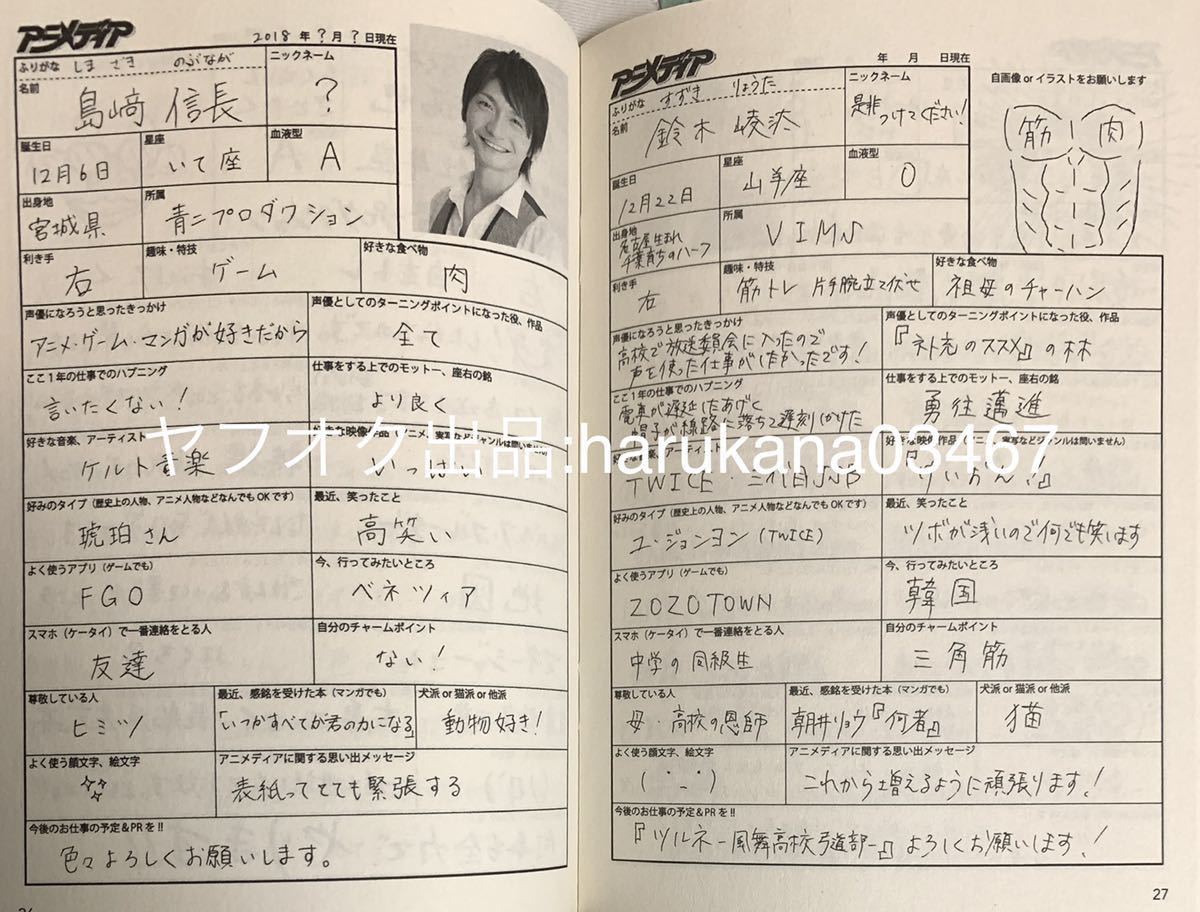 アニメディア
2018 年 ? 月 ? 日現在
ふりがな しまざき のぶなが
名前
島﨑 信長
ニックネーム
?
誕生日
12月6日
星座
いて座
血液型
A
出身地
宮城県
所属
青二プロダクション
利き手
右
趣味・特技
ゲーム
好きな食べ物
肉
声優になろうと思ったきっかけ
アニメ・ゲーム・マンガが好きだから
声優としてのターニングポイントになった役、作品
全て
ここ1年の仕事でのハプニング
言いたくない!
仕事をする上でのモットー、座右の銘
より良く
好きな音楽、アーティスト
ケルト音楽
好きな映像作品(アニメ、実写などジャンルは問いません)
いっぱい
好みのタイプ(歴史上の人物、アニメ人物などなんでもOKです)
琥珀さん
最近、笑ったこと
高笑い
よく使うアプリ(ゲームでも)
FGO
今、行ってみたいところ
ベネツィア
スマホ(ケータイ)で一番連絡をとる人
友達
自分のチャームポイント
ない!
尊敬している人
ヒミツ
最近、感銘を受けた本(マンガでも)
「いつかすべてが君の力になる」
犬派 or 猫派 or 他派
動物好き!
よく使う顔文字、絵文字
アニメディアに関する思い出メッセージ
表紙ってとても緊張する
今後のお仕事の予定&PRを!!
色々よろしくお願いします。
アニメディア
年 月 日現在
ふりがな すずき りょうた
名前
鈴木 崚汰
ニックネーム
是非
つけてください!
自画像 or イラストをお願いします
筋 肉
誕生日
12月22日
星座
山羊座
血液型
O
出身地
名古屋生まれ
千葉育ちのハーフ
所属
VIMS
利き手
右
趣味・特技
筋トレ 片手腕立て伏せ
好きな食べ物
祖母のチャーハン
声優になろうと思ったきっかけ
高校で放送委員会に入ったので
声を使った仕事がしたかったです!
声優としてのターニングポイントになった役、作品
『補充のススメ』の林
ここ1年の仕事でのハプニング
電車が遅延したあげく
帽子が線路に落ちて遅刻しかけた
仕事をする上でのモットー、座右の銘
勇往邁進
好きな音楽、アーティスト
TWICE・三代目JSB
好きな映像作品(アニメ、実写などジャンルは問いません)
『けいおん!』
好みのタイプ(歴史上の人物、アニメ人物などなんでもOKです)
ユ・ジョンヨン(TWICE)
最近、笑ったこと
ツボが浅いので何でも笑います
よく使うアプリ(ゲームでも)
ZOZOTOWN
今、行ってみたいところ
韓国
スマホ(ケータイ)で一番連絡をとる人
中学の同級生
自分のチャームポイント
三角筋
尊敬している人
母・高校の恩師
最近、感銘を受けた本(マンガでも)
朝井リョウ『何者』
犬派 or 猫派 or 他派
猫
よく使う顔文字、絵文字
(・_・)
アニメディアに関する思い出メッセージ
これから増えるように頑張ります!
今後のお仕事の予定&PRを!!
『ツルネ ー風舞高校弓道部ー』よろしくお願いします!
27
ヤフオク出品:harukana03467